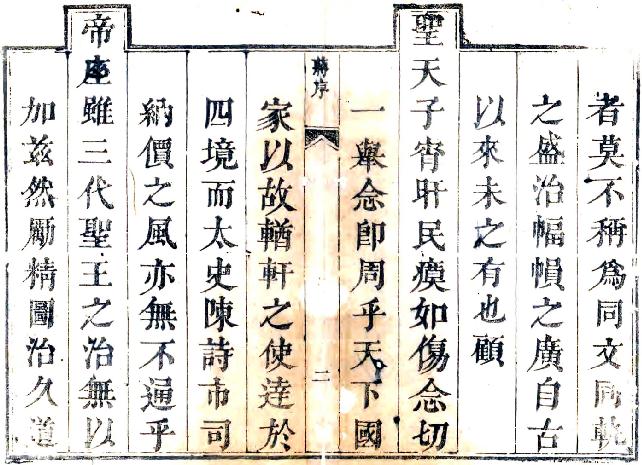 者莫不稱爲同文同軌
之盛治幅幀之廣自古
以來未之有也顧
聖天子宵旰民瘼如傷念切
一舉念卽周乎天下國
蔣序
二
家以故輶軒之使達於
四境而太史陳詩市司
納價之風亦無不通乎
帝座雖三代聖王之治無以
加玆然勵精圖治久道